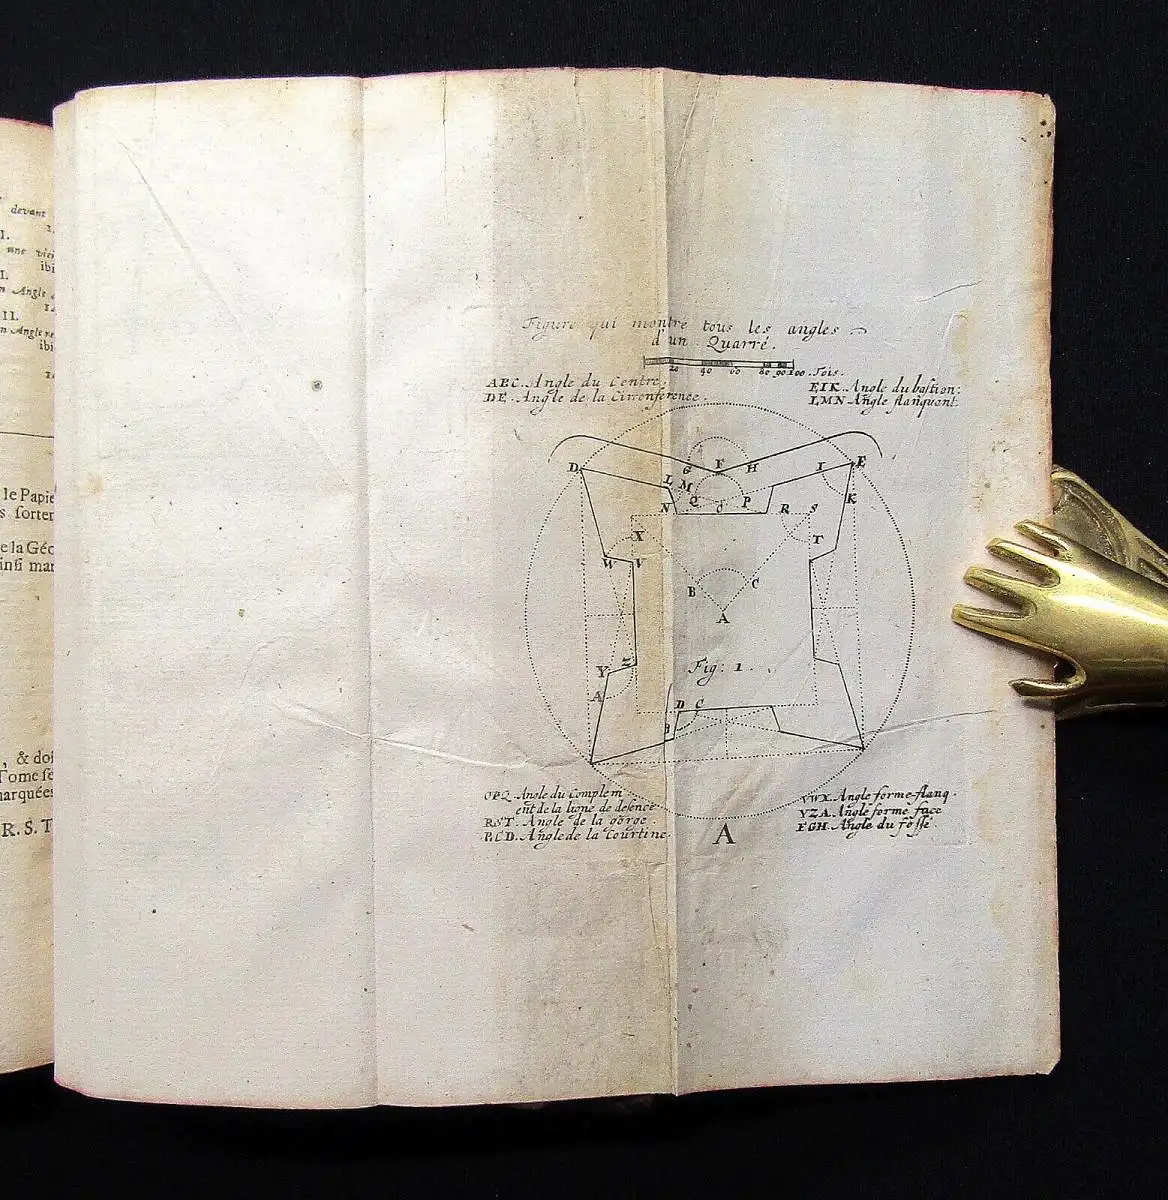 devant
I.
une
ibi
I.
Angle
II.
Angle
ibi
le Papie
s sorter
e la Géo
insi mar
, & doi
Tome se
marquées
R. S. T
Figure qui montre tous les angles
d'un Quarré.
20 40 60 80 90 100 .Tois.
ABC. Angle du Centre.
DE. Angle de la Circonference.
EIK. Angle du bastion:
LMN Angle flanquent.
D
G F H
I E
L M
K
N Q O P R S
X T
W V
B C
A
Fig: 1.
Y Z
A
D C
B
OPQ. Angle du Complem
ent de la ligne de defence
RST. Angle de la gorge
B.C.D. Angle de la Courtine.
VWX. Angle forme-flanq.
YZA. Angle forme face
FGH. Angle du fossé
A